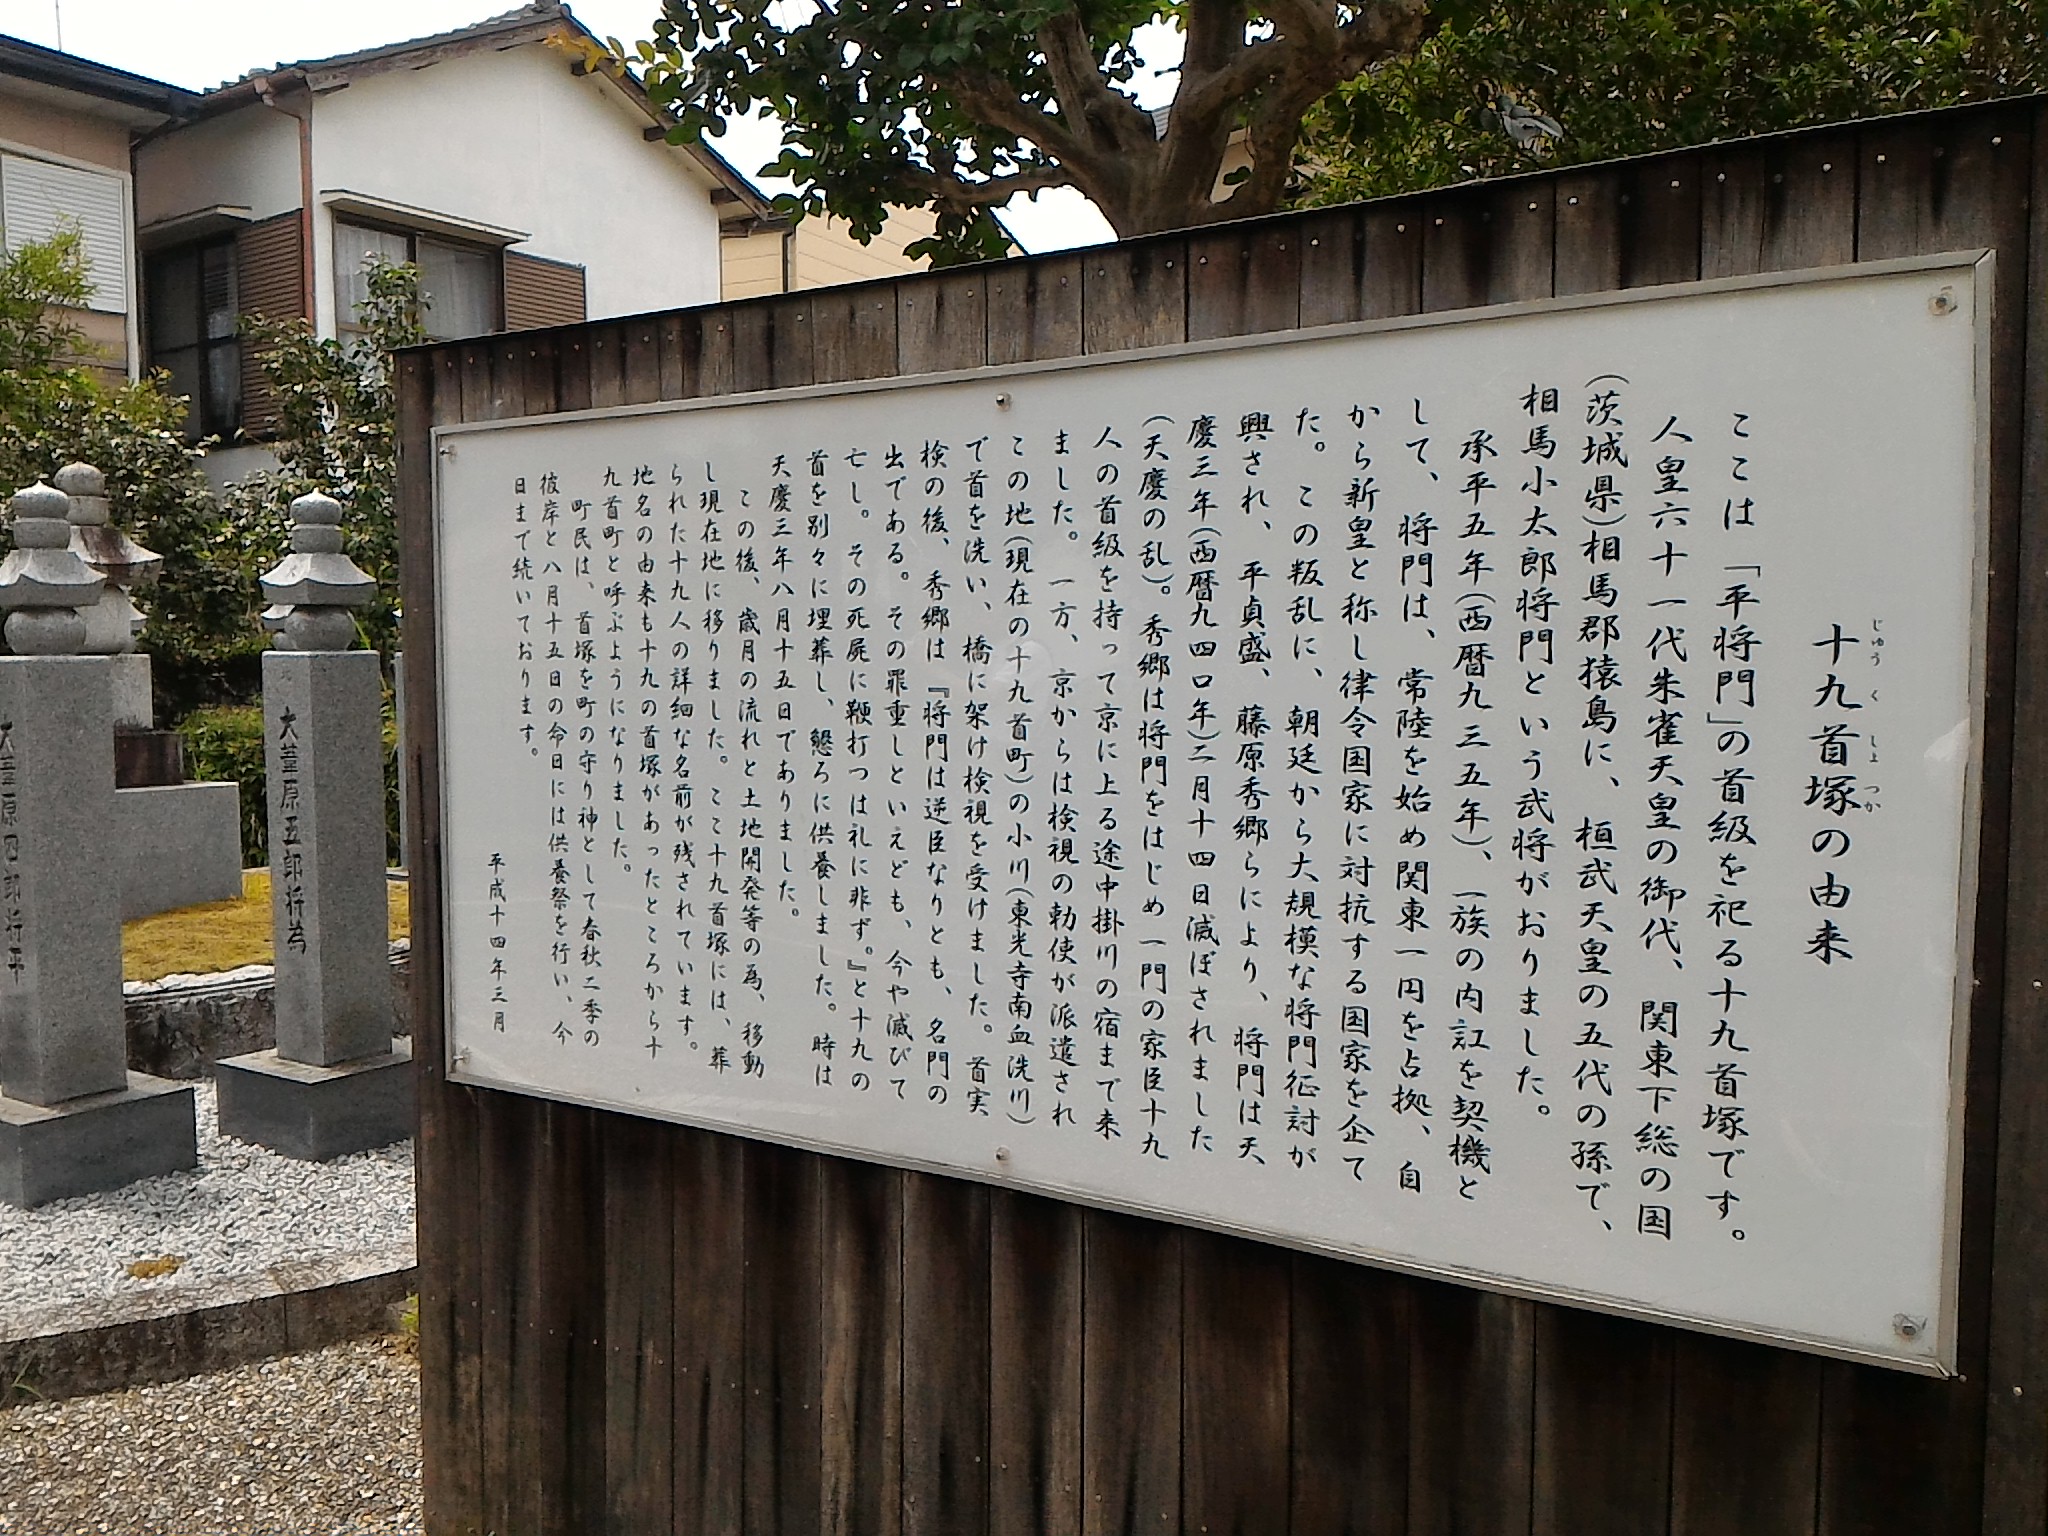 十九首塚の由来
じゅうくしょつか
ここは「平将門」の首級を祀る十九首塚です。
人皇六十一代朱雀天皇の御代、関東下総の国
(茨城県)相馬郡猿島に、桓武天皇の五代の孫で、
相馬小太郎将門という武将がおりました。
承平五年(西暦九三五年)、一族の内訌を契機と
して、将門は、常陸を始め関東一円を占拠、自
から新皇と称し律令国家に対抗する国家を企て
た。この叛乱に、朝廷から大規模な将門征討が
興され、平貞盛、藤原秀郷らにより、将門は天
慶三年(西暦九四〇年)二月十四日滅ぼされました
(天慶の乱)。秀郷は将門をはじめ一門の家臣十九
人の首級を持って京に上る途中掛川の宿まで来
ました。一方、京からは検視の勅使が派遣され
この地(現在の十九首町)の小川(東光寺南血洗川)
で首を洗い、橋に架け検視を受けました。首実
検の後、秀郷は『将門は逆臣なりとも、名門の
出である。その罪重しといえども、今や滅びて
亡し。その死屍に鞭打つは礼に非ず。』と十九の
首を別々に埋葬し、懇ろに供養しました。時は
天慶三年八月十五日でありました。
この後、歳月の流れと土地開発等の為、移動
し現在地に移りました。ここ十九首塚には、葬
られた十九人の詳細な名前が残されています。
地名の由来も十九の首塚があったところから十
九首町と呼ぶようになりました。
町民は、首塚を町の守り神として春秋二季の
彼岸と八月十五日の命日には供養祭を行い、今
日まで続いております。
平成十四年三月
大葦原五郎将為
大葦原四郎将平